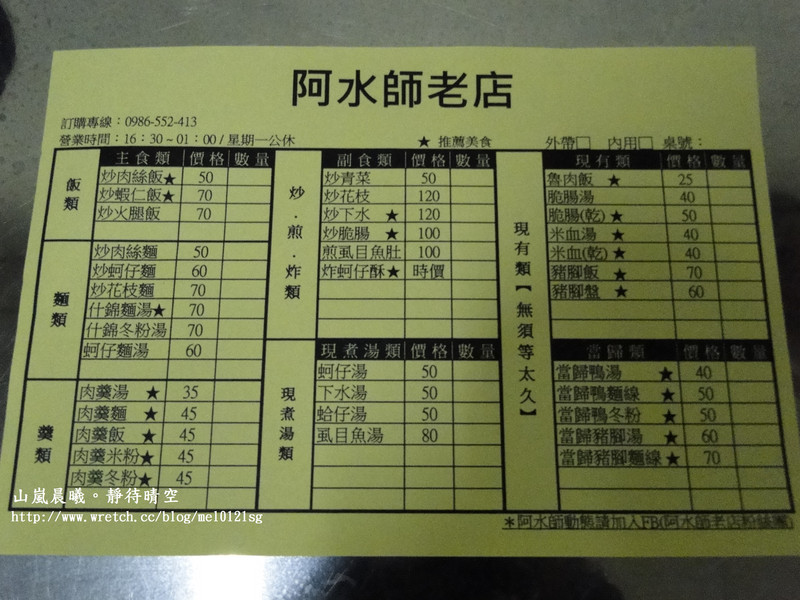 阿水師老店
訂購專線：0986-552-413
營業時間：16：30～01：00/星期一公休
★ 推薦美食 外帶□ 內用□ 桌號：
飯類
主食類 價格 數量
炒肉絲飯★ 50
炒蝦仁飯★ 70
炒火腿飯 70
麵類
炒肉絲麵 50
炒蚵仔麵 60
炒花枝麵 70
什錦麵湯★ 70
什錦冬粉湯 70
蚵仔麵湯 60
羹類
肉羹湯 ★ 35
肉羹麵 ★ 45
肉羹飯 ★ 45
肉羹米粉★ 45
肉羹冬粉★ 45
炒．煎．炸類
副食類 價格 數量
炒青菜 50
炒花枝 120
炒下水 ★ 120
炒脆腸 ★ 100
煎虱目魚肚 100
炸蚵仔酥★ 時價
現煮湯類
現煮湯類 價格 數量
蚵仔湯 50
下水湯 50
蛤仔湯 50
虱目魚湯 80
現有類【無須等太久】
現有類 價格 數量
魯肉飯 ★ 25
脆腸湯 40
脆腸(乾)★ 50
米血湯 ★ 40
米血(乾)★ 40
豬腳飯 ★ 70
豬腳盤 ★ 60
當歸類 價格 數量
當歸鴨湯 ★ 40
當歸鴨麵線★ 50
當歸鴨冬粉★ 50
當歸豬腳湯 ★ 60
當歸豬腳麵線★ 70
＊阿水師動態請加入FB(阿水師老店粉絲團)
山嵐晨曦。靜待晴空
http://www.wretch.cc/blog/mel0121sg